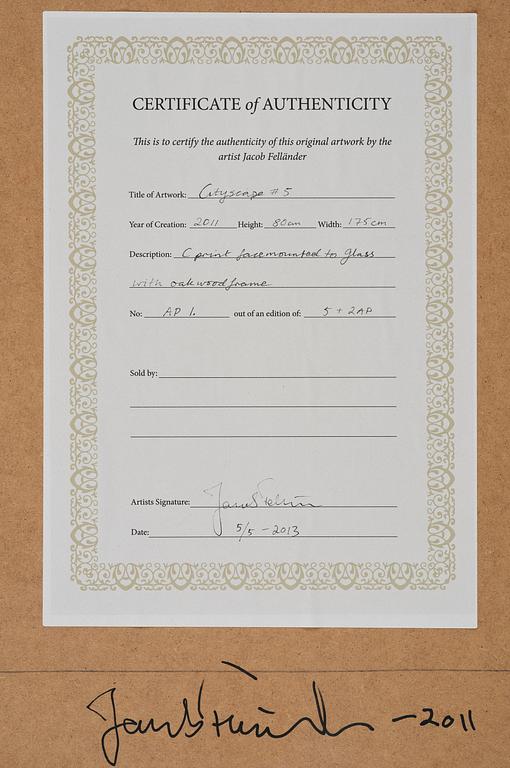 CERTIFICATE of AUTHENTICITY
This is to certify the authenticity of this original artwork by the
artist Jacob Felländer
Title of Artwork: Cityscape #5
Year of Creation: 2011 Height: 80cm Width: 175cm
Description: C print facemounted to glass
with oakwoodframe
No: AP 1. out of an edition of: 5 + 2AP
Sold by:
Artists Signature:
Date: 5/5 - 2013
- 2011